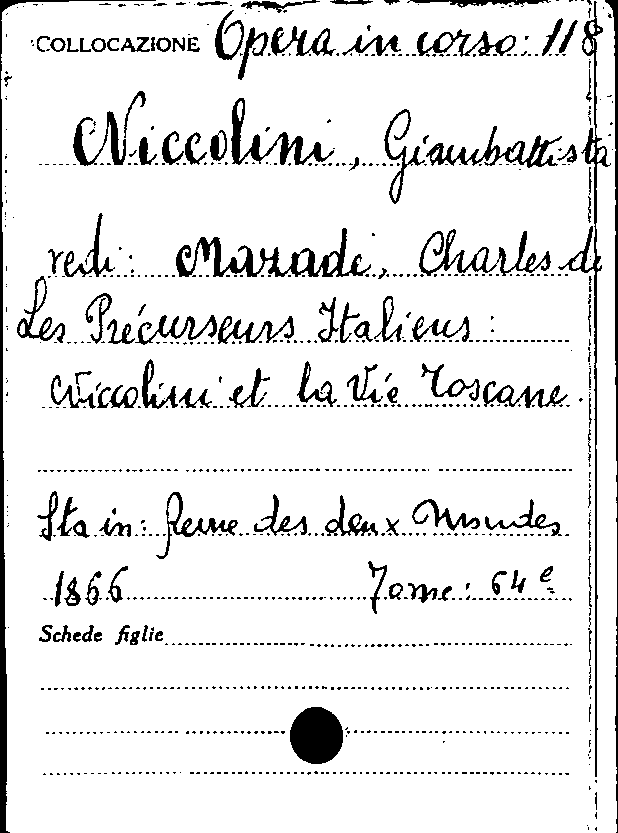 COLLOCAZIONE Opera in corso: 118
Niccolini, Giambattista
vedi: Mazade, Charles de
Les Précurseurs Italiens:
Niccolini et la Vie Toscane.
Sta in: Revue des deux Mondes
1866 Tome: 64e
Schede figlie